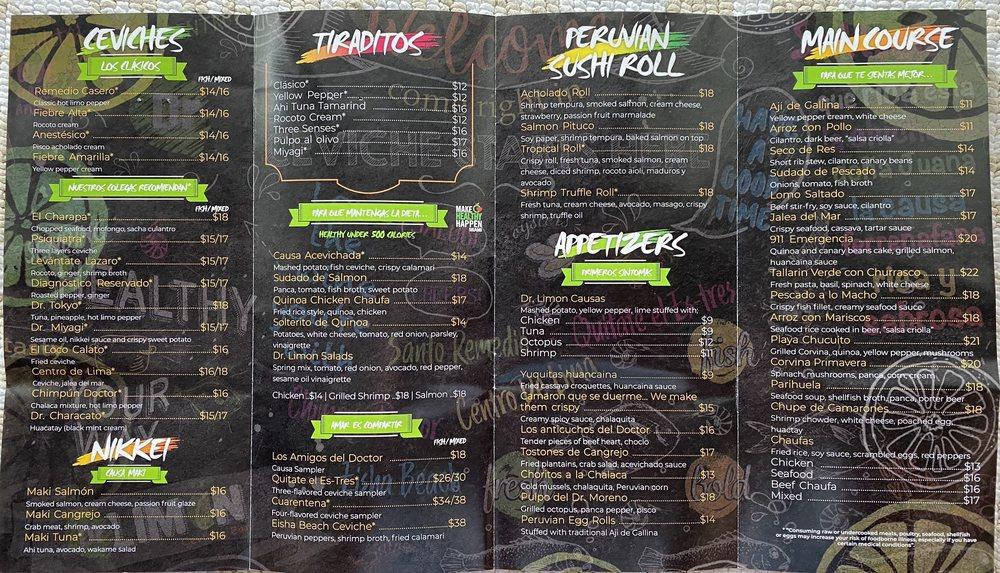 CEVICHES
LOS CLÁSICOS
FISH/MIXED
Remedio Casero* $14/16
Classic hot limo pepper
Fiebre Alta* $14/16
Rocoto cream
Anestésico* $14/16
Pisco acholado cream
Fiebre Amarilla* $14/16
Yellow pepper cream
NUESTROS COLEGAS RECOMIENDAN*
FISH/MIXED
El Charapa* $18
Chopped seafood, molongo, sacha culantro
Psiquiatra* $15/17
Three layers ceviche
Levántate Lázaro* $15/17
Rocoto, ginger, shrimp broth
Diagnostico Reservado* $15/17
Roasted pepper, ginger
Dr. Tokyo* $18
Tuna, pineapple, hot limo pepper
Dr. Miyagi* $15/17
Sesame oil, nikkei sauce and crispy sweet potato
El Loco Calato* $16
Fried ceviche
Centro de Lima* $16/18
Ceviche, jalea del mar
Chimpún Doctor* $16
Chalaca mixture, hot limo pepper
Dr. Characato* $15/17
Huacatay (black mint cream)
NIKKEI
CAUSA MAKI
Maki Salmón $16
Smoked salmon, cream cheese, passion fruit glaze
Maki Cangrejo $16
Crab meat, shrimp, avocado
Maki Tuna* $16
Ahi tuna, avocado, wakame salad
TIRADITOS
Clásico* $12
Yellow Pepper* $12
Ahi Tuna Tamarind $16
Rocoto Cream* $12
Three Senses* $16
Pulpo al olivo $17
Miyagi* $16
PARA QUE MANTENGAS LA DIETA...
HEALTHY UNDER 500 CALORIES
MAKE HEALTHY HAPPEN
Causa Acevichada* $14
Mashed potato, fish ceviche, crispy calamari
Sudado de Salmón $18
Panca, tomato, fish broth, sweet potato
Quinoa Chicken Chaufa $17
Fried rice style, quinoa, chicken
Solterito de Quinoa $14
Potatoes, white cheese, tomato, red onion, parsley, vinaigrette
Dr. Limon Salads
Spring mix, tomato, red onion, avocado, red pepper, sesame oil vinaigrette
Chicken ..$14 | Grilled Shrimp ..$18 | Salmon ..$18
AMAR ES COMPARTIR
FISH/MIXED
Los Amigos del Doctor $18
Causa Sampler
Quitate el Es-Tres* $26/30
Three-flavored ceviche sampler
Cuarentena* $34/38
Four-flavored ceviche sampler
Eisha Beach Ceviche* $38
Peruvian peppers, shrimp broth, fried calamari
PERUVIAN
SUSHI ROLL
Acholado Roll $18
Shrimp tempura, smoked salmon, cream cheese, strawberry, passion fruit marmalade
Salmon Pituco $18
Soy paper, shrimp tempura, baked salmon on top
Tropical Roll* $18
Crispy roll, fresh tuna, smoked salmon, cream cheese, diced shrimp, rocoto aioli, maduros y avocado
Shrimp Truffle Roll* $18
Fresh tuna, cream cheese, avocado, masago, crispy shrimp, truffle oil
APPETIZERS
PRIMEROS SINTOMAS
Dr. Limon Causas
Mashed potato, yellow pepper, lime stuffed with;
Chicken $9
Tuna $9
Octopus $12
Shrimp $11
Yuquitas huancaina $9
Fried cassava croquettes, huancaina sauce
Camaron que se duerme... We make them crispy $15
Creamy spicy sauce, chalaquita
Los anticuchos del Doctor $16
Tender pieces of beef heart, choclo
Tostones de Cangrejo $17
Fried plantains, crab salad, acevichado sauce
Choritos a la Chalaca $13
Cold mussels, chalaquita, Peruvian corn
Pulpo del Dr. Moreno $18
Grilled octopus, panca pepper, pisco
Peruvian Egg Rolls $14
Stuffed with traditional Aji de Gallina
MAIN COURSE
PARA QUE TE SIENTAS MEJOR...
Aji de Gallina $11
Yellow pepper cream, white cheese
Arroz con Pollo $11
Cilantro, dark beer, "salsa criolla"
Seco de Res $14
Short rib stew, cilantro, canary beans
Sudado de Pescado $14
Onions, tomato, fish broth
Lomo Saltado $17
Beef stir-fry, soy sauce, cilantro
Jalea del Mar $17
Crispy seafood, cassava, tartar sauce
911 Emergencia $20
Quinoa and canary beans cake, grilled salmon, huancaina sauce
Tallarin Verde con Chufrasco $22
Fresh pasta, basil, spinach, white cheese
Pescado a lo Macho $18
Crispy fish fillet, creamy seafood sauce
Arroz con Mariscos $18
Seafood rice cooked in beer, "salsa criolla"
Playa Chucuito $21
Grilled Corvina, quinoa, yellow pepper, mushrooms
Corvina Primavera $20
Spinach, mushrooms, panca, corn, cream
Parihuela $18
Seafood soup, shellfish broth, panca, porter beer
Chupe de Camarones $18
Shrimp chowder, white cheese, poached egg, huactay
Chaufas
Fried rice, soy sauce, scrambled eggs, red peppers
Chicken $13
Seafood $16
Beef Chaufa $16
Mixed $17
"*Consuming raw or undercooked meats, poultry, seafood, shellfish or eggs may increase your risk of foodborne illness, especially if you have certain medical conditions".